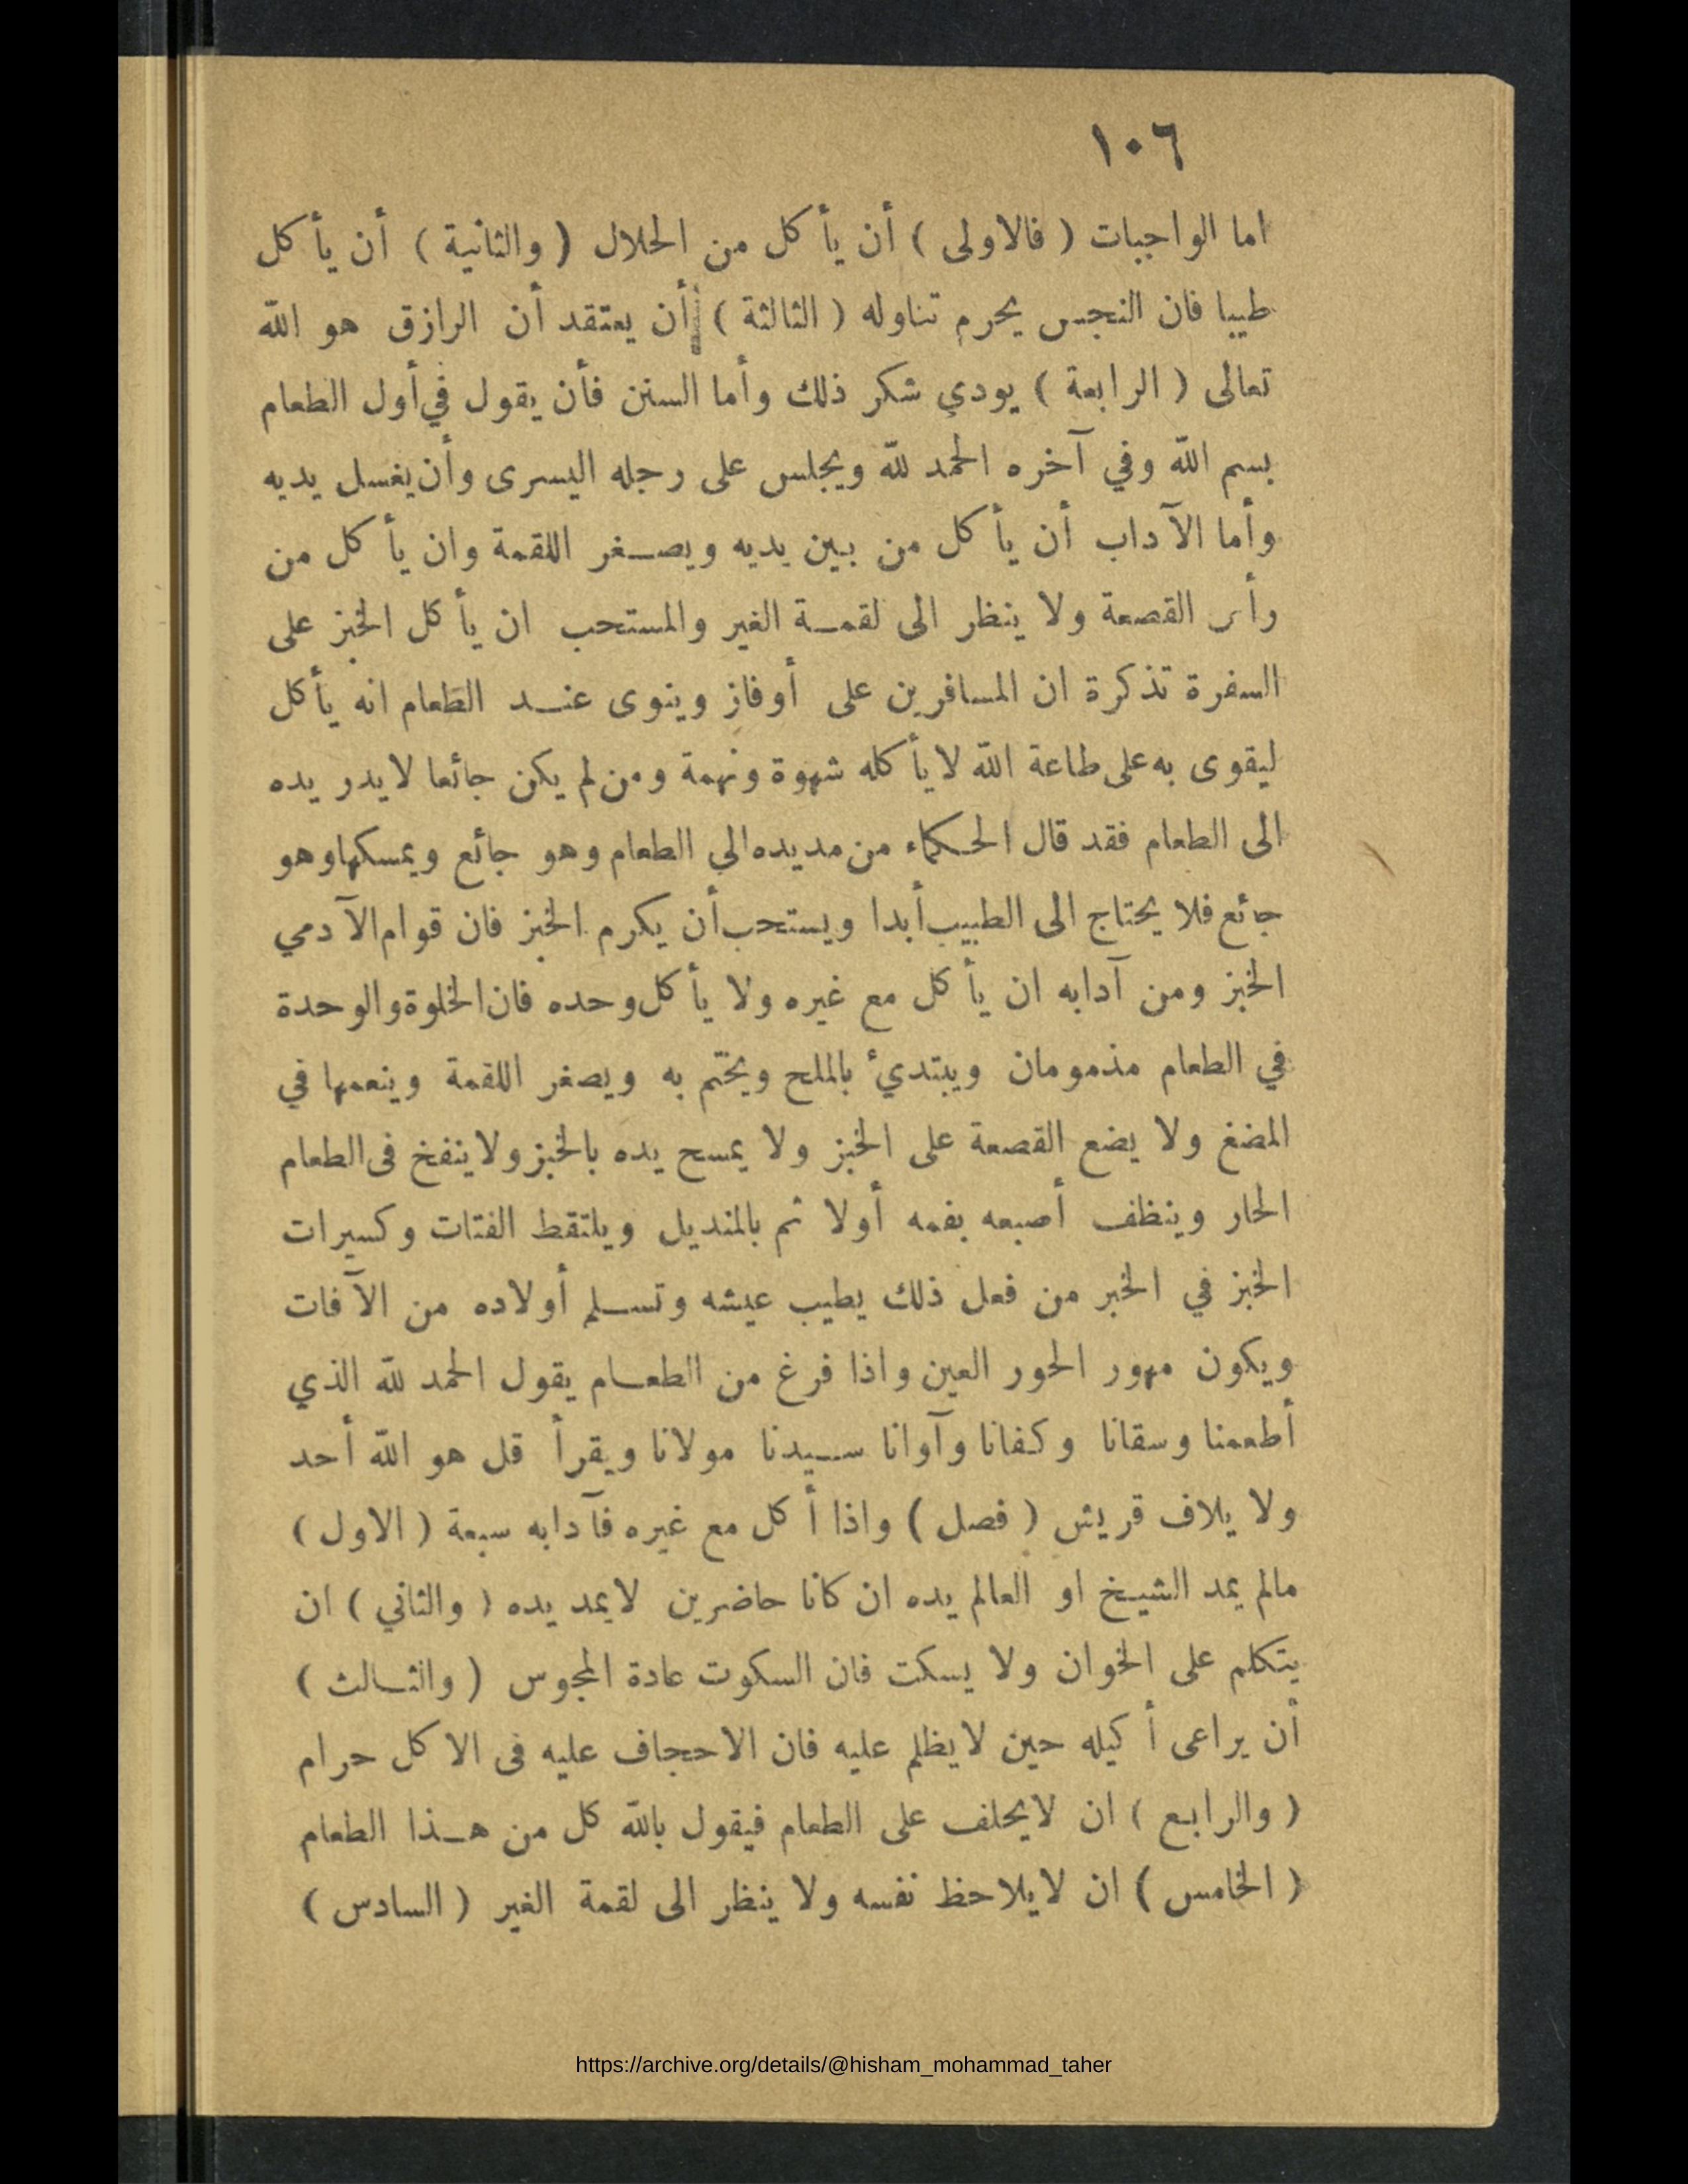 ١٠٦
اما الواجبات ( فالاولى ) أن يأكل من الحلال ( والثانية ) أن يأكل
طيبا فان النجس يحرم تناوله ( الثالثة ) أن يعتقد أن الرازق هو الله
تعالى ( الرابعة ) يودي شكر ذلك وأما السنن فأن يقول في أول الطعام
بسم الله وفي آخره الحمد لله ويجلس على رجله اليسرى وأن يغسل يديه
وأما الآداب أن يأكل من بين يديه ويصغر اللقمة وان يأكل من
رأس القصعة ولا ينظر الى لقمة الغير والمستحب ان يأكل الخبز على
السفرة تذكرة ان المسافرين على أوفاز وينوى عند الطعام انه يأكل
ليقوى به على طاعة الله لا يأكله شهوة ونهمة ومن لم يكن جائعا لا يدر يده
الى الطعام فقد قال الحكماء من مد يده الي الطعام وهو جائع ويمسكها وهو
جائع فلا يحتاج الى الطبيب أبدا ويستحب أن يكرم الخبز فان قوام الآدمي
الخبز ومن آدابه ان يأكل مع غيره ولا يأكل وحده فان الخلوة والوحدة
في الطعام مذمومان ويبتديء بالملح ويختم به ويصغر اللقمة وينعمها في
المضغ ولا يضع القصعة على الخبز ولا يمسح يده بالخبز ولا ينفخ فى الطعام
الحار وينظف أصبعه بفمه أولا ثم بالمنديل ويلتقط الفتات وكسيرات
الخبز في الخبر من فعل ذلك يطيب عيشه وتسلم أولاده من الآفات
ويكون مهور الحور العين واذا فرغ من الطعام يقول الحمد لله الذي
أطعمنا وسقانا وكفانا وآوانا سيدنا مولانا ويقرأ قل هو الله أحد
ولا يلاف قريش ( فصل ) واذا أكل مع غيره فآدابه سبعة ( الاول )
مالم يمد الشيخ او العالم يده ان كانا حاضرين لا يمد يده ( والثاني ) ان
يتكلم على الخوان ولا يسكت فان السكوت عادة المجوس ( والثالث )
أن يراعى أكيله حين لا يظلم عليه فان الاحجاف عليه فى الاكل حرام
( والرابع ) ان لا يحلف على الطعام فيقول بالله كل من هذا الطعام
( الخامس ) ان لا يلاحظ نفسه ولا ينظر الى لقمة الغير ( السادس )
https://archive.org/details/@hisham_mohammad_taher